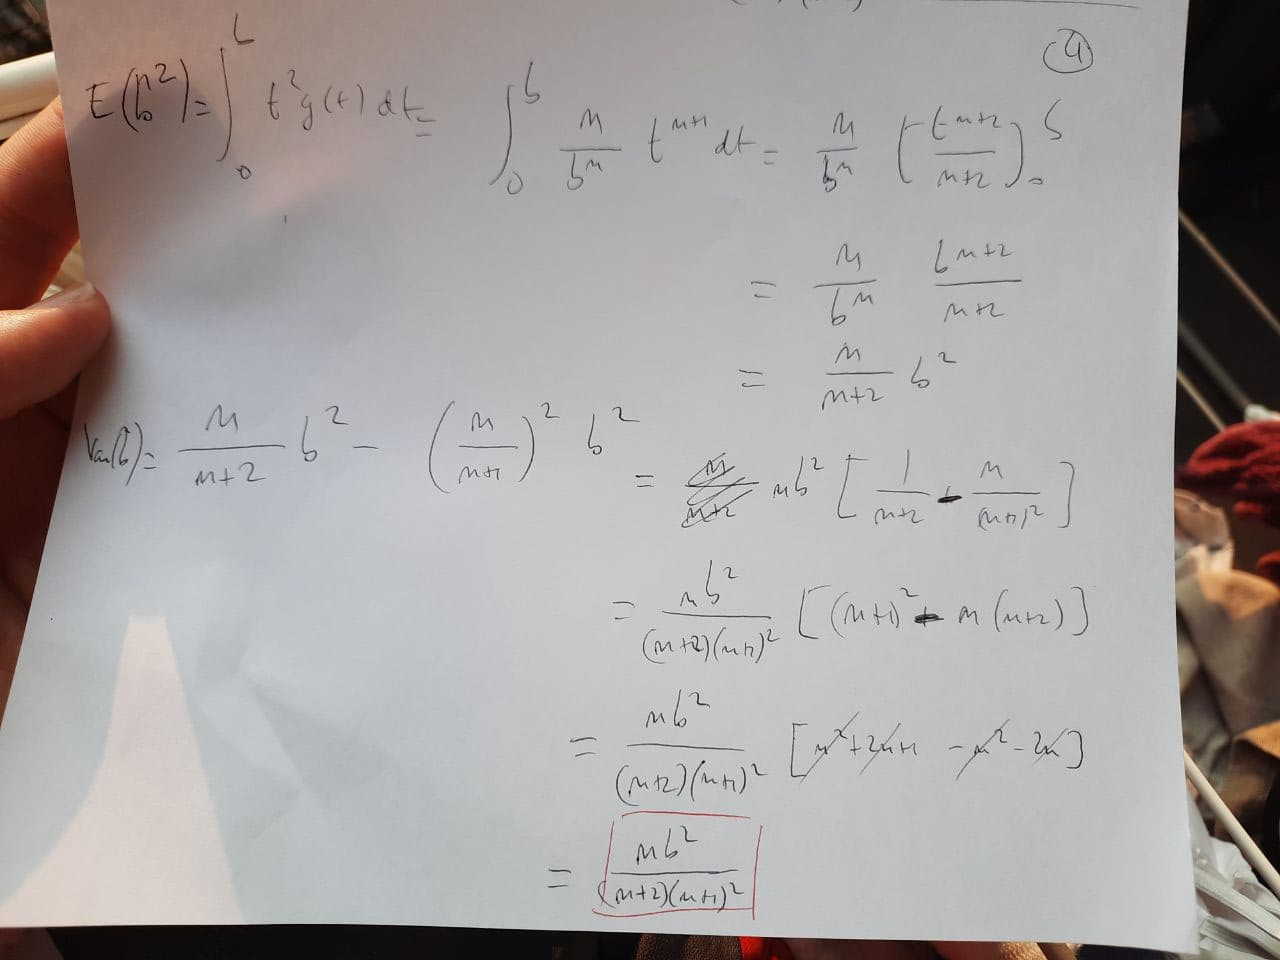 ④
E(b̂²) = ∫₀ᵇ t² g(t) dt = ∫₀ᵇ n/bⁿ tⁿ⁺¹ dt = n/bⁿ (tⁿ⁺²/n+2)₀ᵇ
= n/bⁿ bⁿ⁺²/n+2
= n/n+2 b²
Var(b̂) = n/n+2 b² - (n/n+1)² b² = nb² [1/n+2 - n/(n+1)²]
= nb²/(n+2)(n+1)² [(n+1)² - n(n+2)]
= nb²/(n+2)(n+1)² [n²+2n+1 -n²-2n]
= nb²/(n+2)(n+1)²